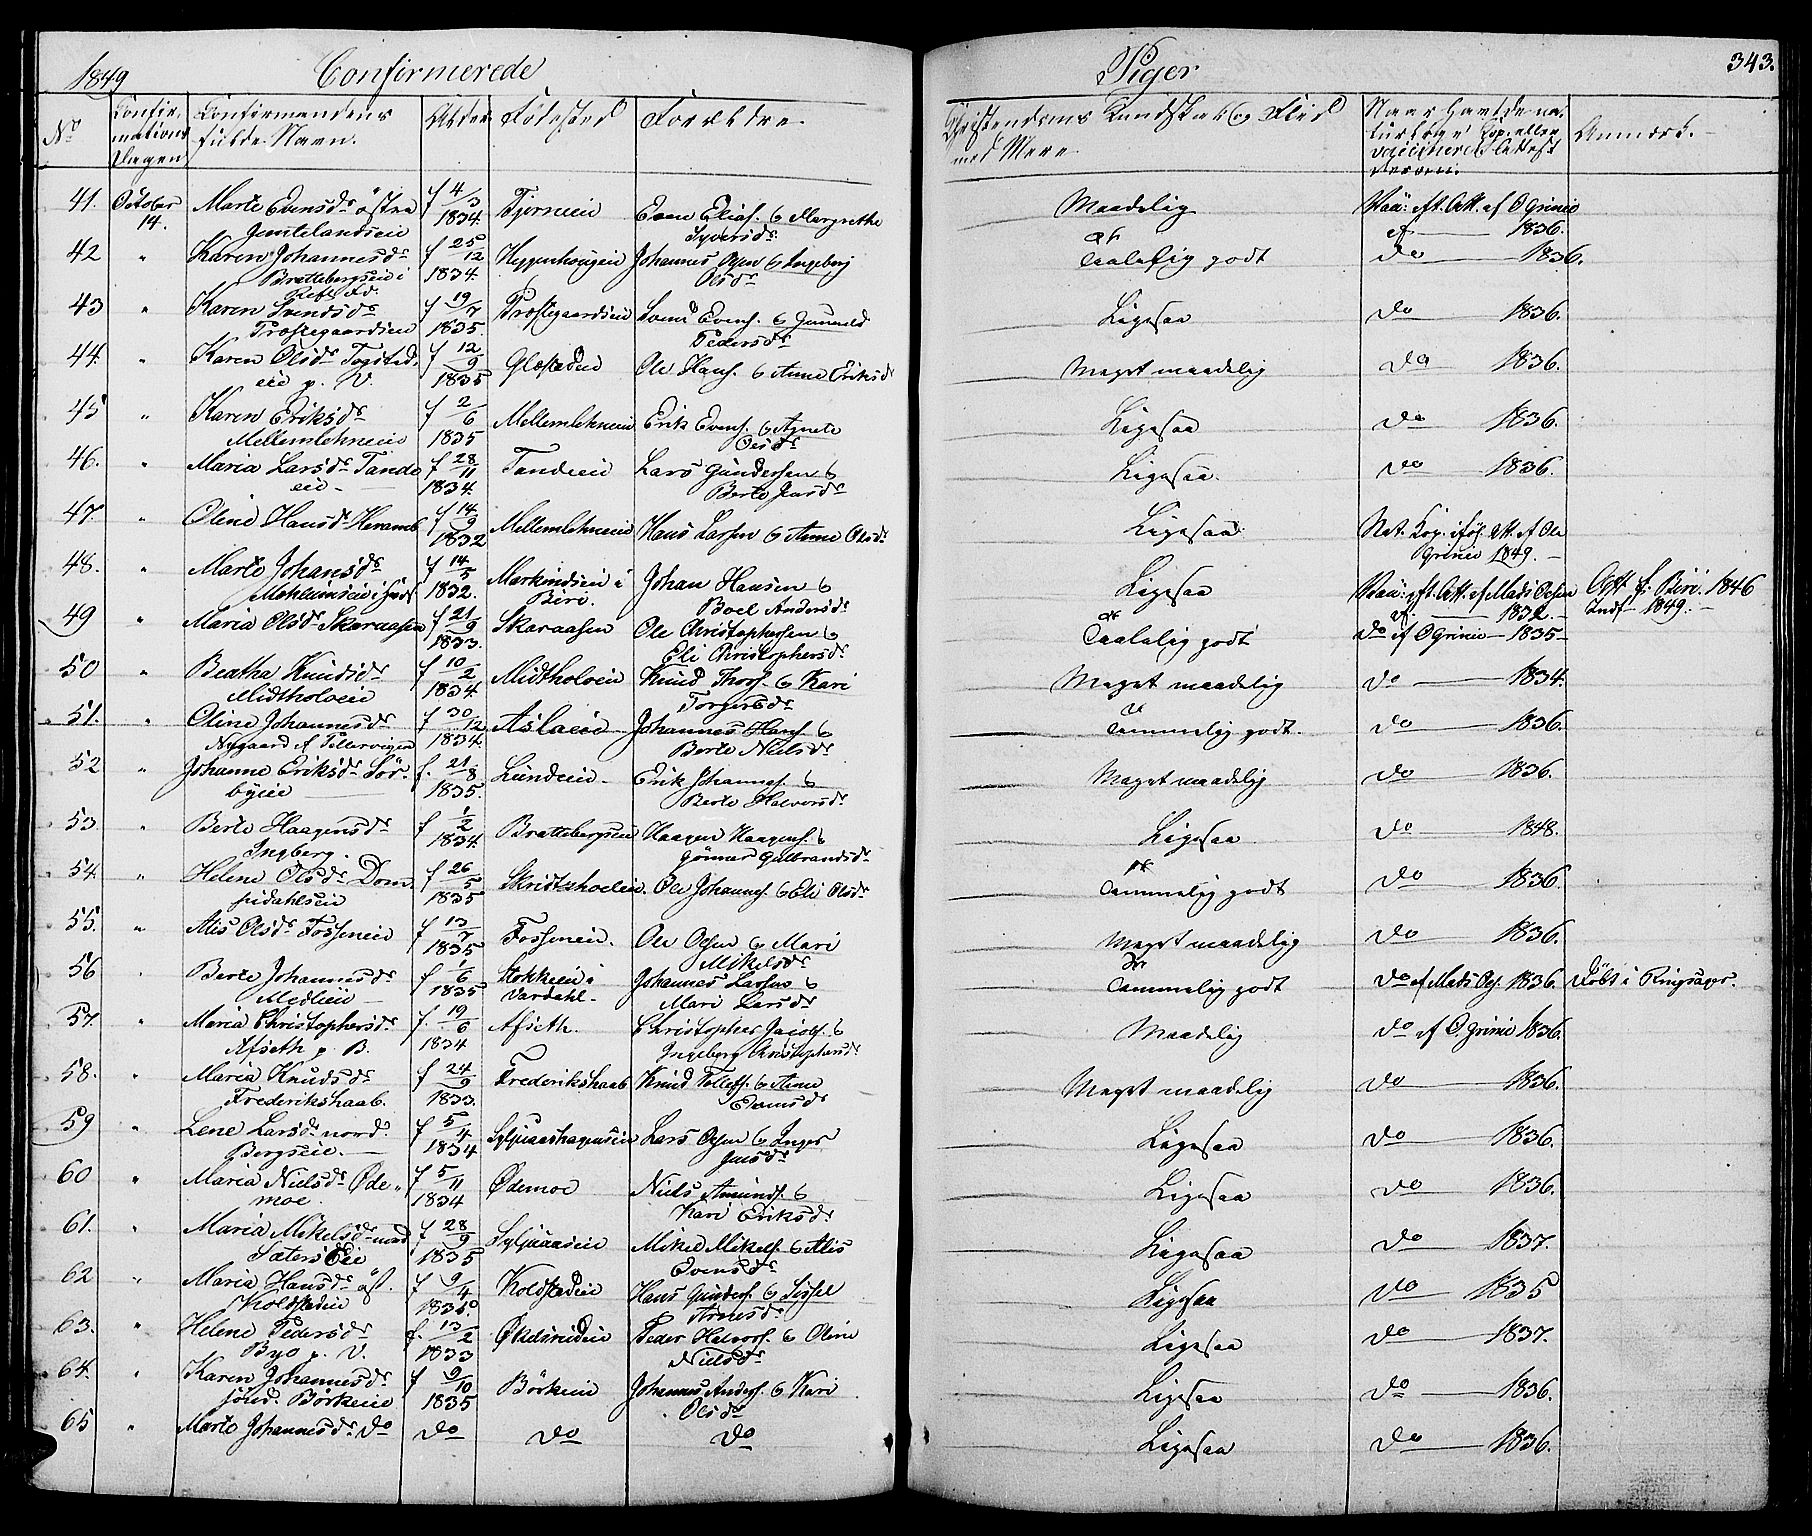 1849 Confirmerede Piger 343.
No Confirmations Dagen Confirmandens fulde Navn. Alder Fødested Forældre Christendoms Kundskab og Flid med Mere Naar havt de naturlige Kop. eller vaccineret Attest derom. Anmærk.
41. October 14. Marte Evensdr østre Jemtelandseie f 4/3 1834. Even Eliass. & Margrethe Syversdr Maadelig Vacc: eft. Att. af O Grinie af 1836.
42 " Karen Johannesdr Brattebergseie i f 25/12 1834. Johannes Olsen & Ingeborg Olsdr Taalelig godt do 1836.
43 " Karen Svendsdr Præstegaardseie f 19/7 1835 Præstegaardseie Svend Evens. & Gunnild Pedersdr Ligesaa do 1836.
44. " Karen Olsdr Fogstad eie p. V. f 12/9 1835 Glæstadeie Ole Hans. & Anne Eriksdr Meget maadelig do 1836.
45 " Karen Eriksdr Mellemlehneeie f 2/6 1835 Mellemlehneeie Erik Evens. & Agnete Olsdr Ligesaa do 1836.
46. " Maria Larsdr Tande eie f 28/11 1834. Tandeeie Lars Gundersen & Berte Jensdr Ligesaa. do 1836.
47. " Oline Hansdr Keramb f 14/9 1832 Mellemlehneeie Hans Larsen & Anne Olsdr Ligesaa Nat. Kop. iføl. Att. af Ole Grinie 1849.
48. " Marte Johansdr f 14/5 1832. i Biri. Johan Hansen & Boel Andersdr Ligesaa Vacc: eft. Att. af Mads Olsen af 1832. Att f. Biri. 1846 Indf 1849.
49 " Maria Olsdr Skaraasen f 21/9 1833. Skaraasen Ole Christophersen & Eli Christophersdr Taalelig godt do af O Grinie 1835
50 " Beathe Knudsdr Midtholoeie f 10/2 1834. Midtholoeie Knud Thors. & Kari Torgersdr Meget maadelig do 1834.
51. " Oline Johannesdr Nygaard af f 30/12 1834. Aslaeie Johannes Hans. & Berte Nielsdr Temmelig godt. do 1836.
52 " Johanne Eriksdr Sørbyeie f. 21/8 1835. Lundeeie Erik Johannes. & Berte Halvorsdr Meget maadelig do 1836.
53. " Berte Haagensdr Ingberg. f 1/2 1834. Brattebergseie Haagen Haagens. & Gönner Gulbrandsdr Ligesaa do 1848.
54. " Helene Olsdr f 26/5 1835 Ole Johannes. & Eli Olsdr Temmelig godt do 1836.
55. " Alis Olsdr Fosseneie f 13/7 1835 Fosseneie. Ole Olsen & Mari Mikelsdr Meget maadelig do 1836.
56 " Berte Johannesdr Medlieie f 1/6 1835 Stokkeeie i Vardahl Johannes Larsen & Mari Larsdr Temmelig godt do af Mads Ols. 1836. Døbt i Ringsager.
57. " Maria Christophersdr Afseth p. B. f. 19/6 1834 Afseth. Christopher Jacobs. & Ingeborg Christophersdr Maadelig do af O. Grinie 1836.
58. " Maria Knudsdr Frederikshaab. f 24/9 1833. Frederikshaab Knud Tollefs. & Anne Evensdr Meget maadelig do 1836.
59 " Lene Larsdr nord. Bergseie. f 5/4 1834 Lars Olsen & Inger Jensdr Ligesaa do 1836.
60 " Maria Nielsdr Ødemoe f 5/11 1834 Ødemoe Niels Amunds. & Kari Eriksdr Ligesaa do 1836.
61. " Maria Mikelsdr nord Sæters Eie f 28/9 1835 Mikel Mikels. & Alis Evensdr Ligesaa do 1837.
62 " Maria Hansdr øst. Koldstadeie f 9/4 1835 Koldstadeie Hans Gunders. & Sissel Arnesdr Ligesaa do 1835
63. " Helene Pedersdr Bye p. V. f. 13/2 1833 Økelsrudeie Peder Halvors. & Oline Nielsdr Ligesaa do 1837.
64. " Karen Johannesdr sönd. Börkeeie f 9/10 1835 Börkeeie Johannes Anders. & Kari Olsdr Ligesaa do 1836.
65 " Marte Johannesdr do do do do Ligesaa do 1836.